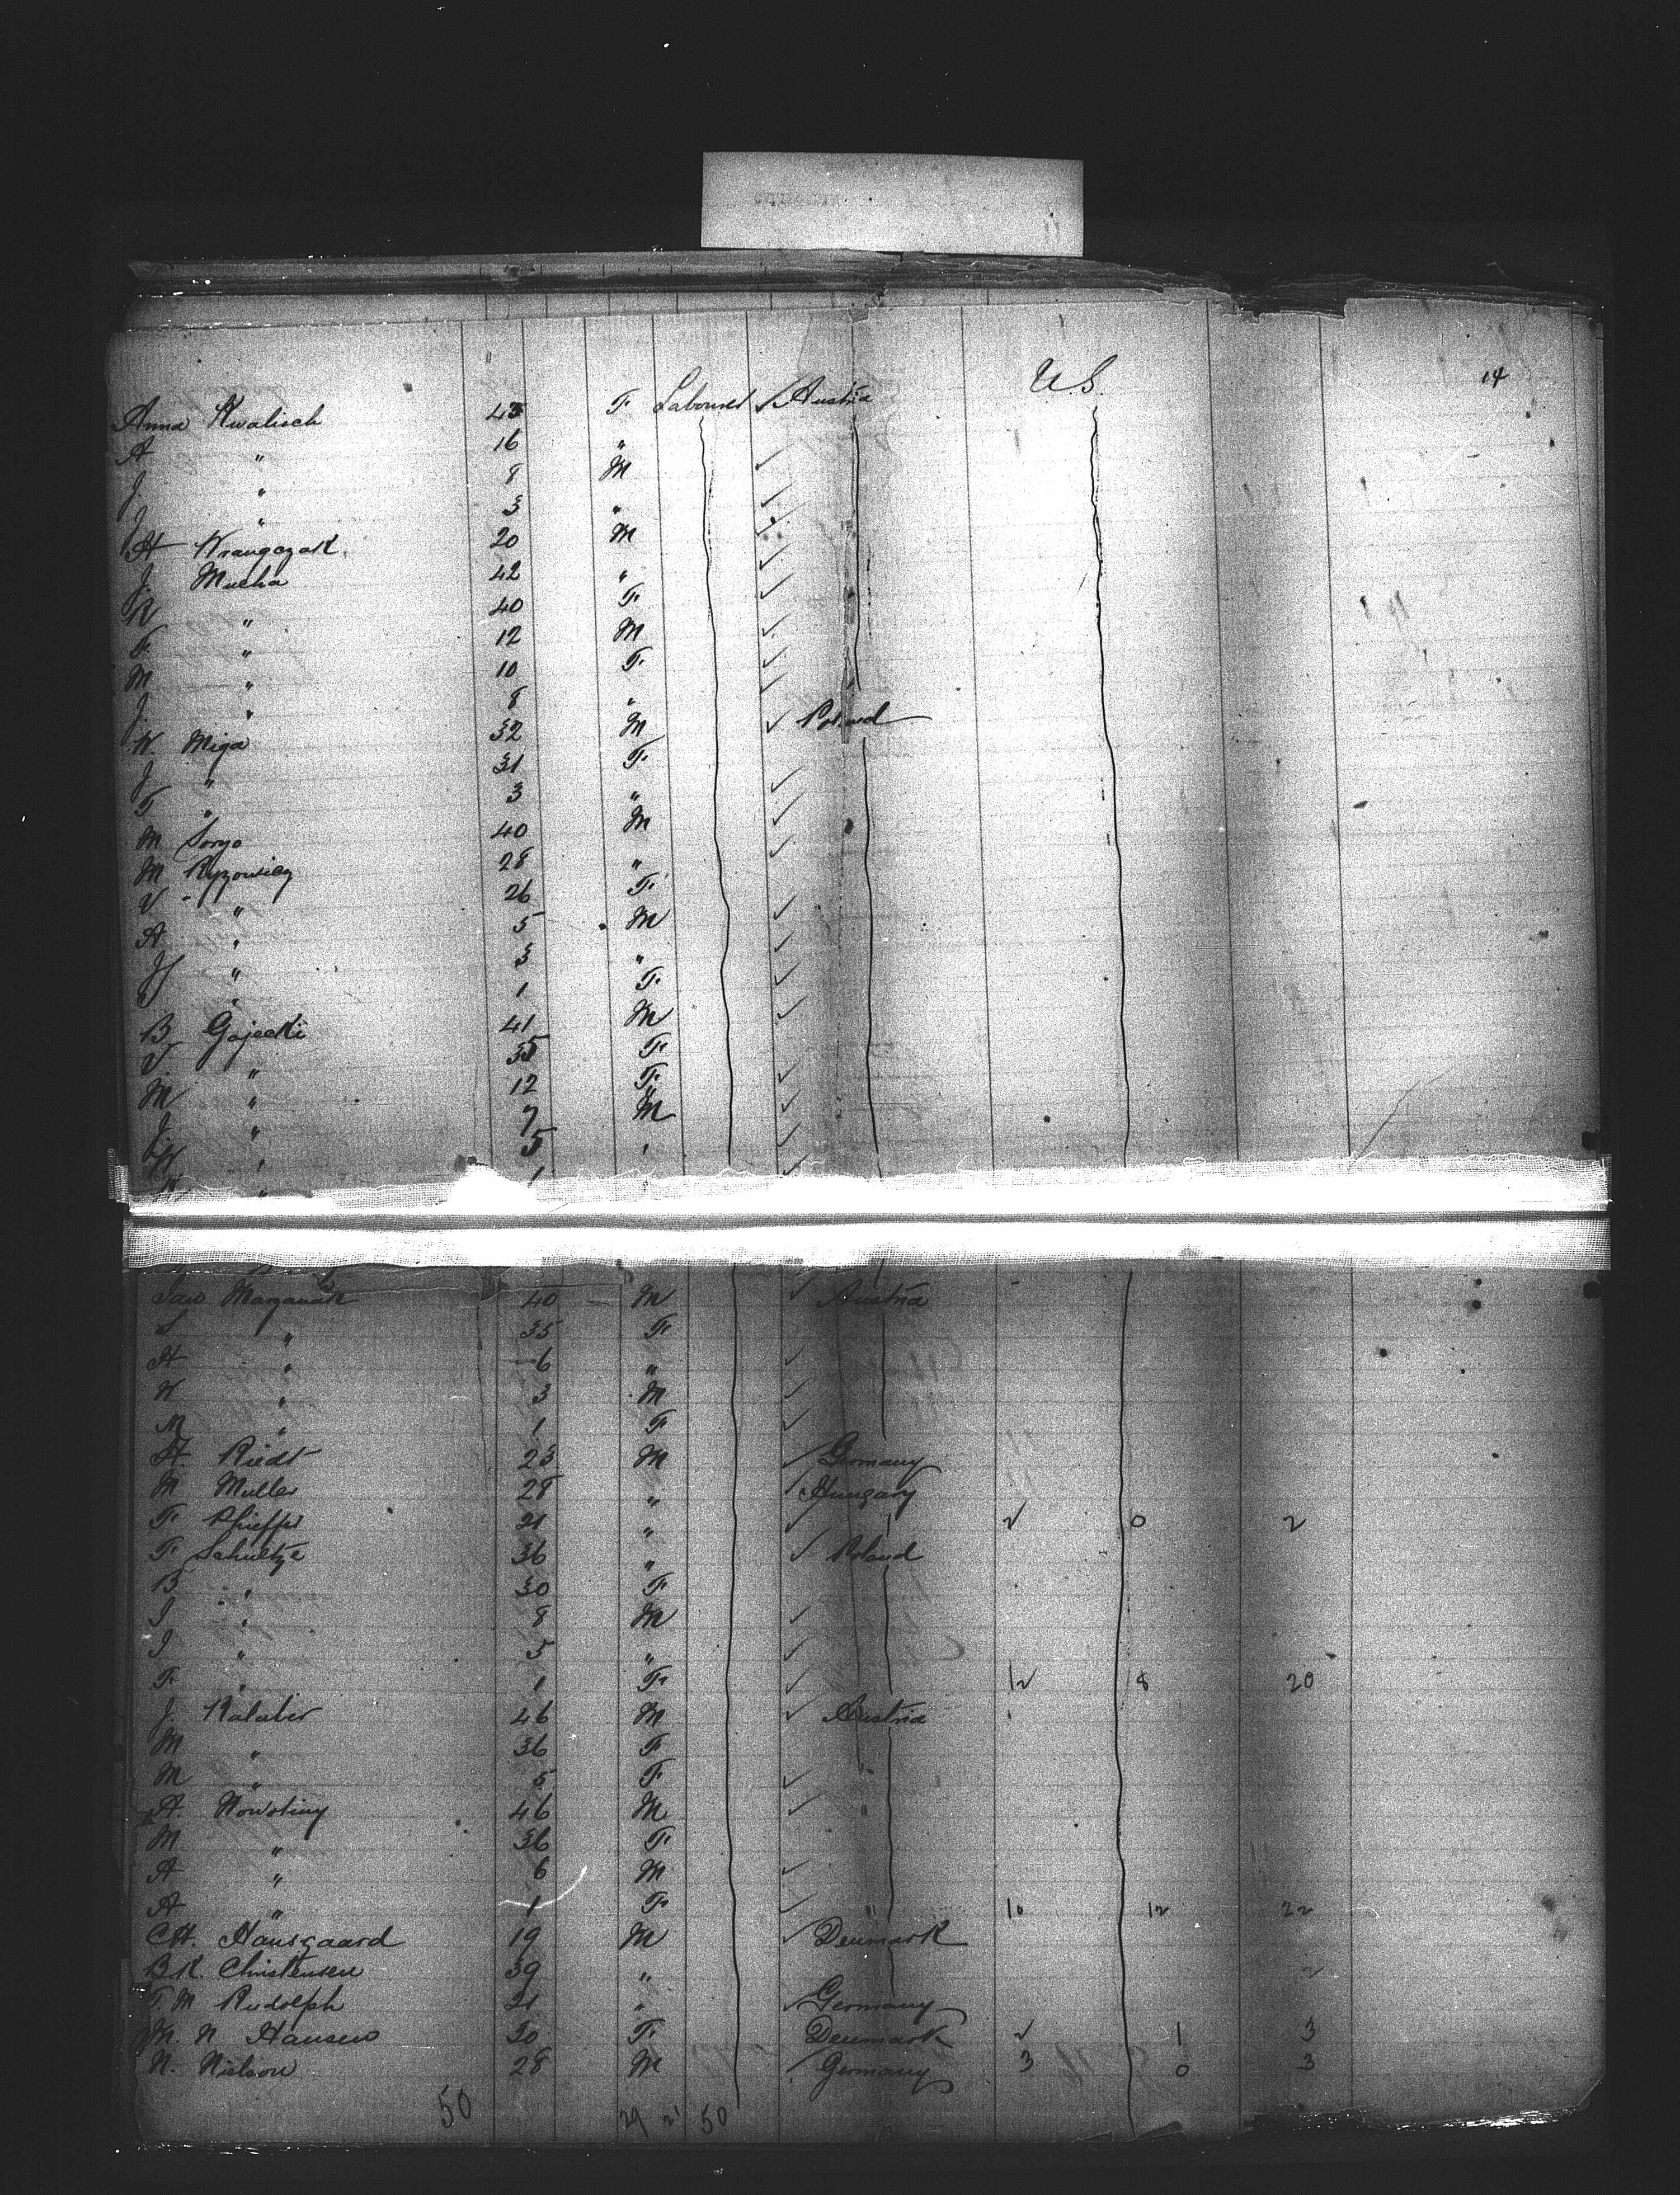 U.S. 14
Anna Kwalisch 43 F Labourer ✓ Austria
A " 16 "
J " 8 M ✓
J " 3 " ✓
A 20 M ✓
J. Mucha 42 " ✓
K " 40 F ✓
F. " 12 M ✓
M " 10 F ✓
J. " 8 " ✓
W. Miga 32 M ✓ Poland
J " 31 F
F " 3 " ✓
M Soryo 40 M ✓
M 28 " ✓
V " 26 F
A " 5 M ✓
J " 3 " ✓
" 1 F ✓
B. Gajecki 41 M ✓
" 35 F
M " 12 F ✓
J " 7 M ✓
" 5 ✓
" 1 ✓
40 M ✓ Austria
S " 35 F
A " 6 " ✓
W " 3 M ✓
M " 1 F ✓
A. Riedt 23 M ✓ Germany
M Muller 28 " Hungary
F. 21 " ✓ " 2 0 2
F. Schultze 36 " ✓ Poland
B " 30 F
" 8 M ✓
" 5 " ✓
F. " 1 F ✓ 12 8 20
J. 46 M ✓ Austria
M " 36 F
M " 5 F ✓
A. Nowotiny 46 M ✓ "
M " 36 F
A " 6 M ✓
A " 1 F ✓ " 10 12 22
C.H. Hansgaard 19 M ✓ Denmark
B.K. Christensen 39 " 2
T. M Rudolph 21 " ✓ Germany
M. N Hansen 30 F Denmark 2 1 3
N. Nielson 28 M Germany 3 0 3
50 29 21 50